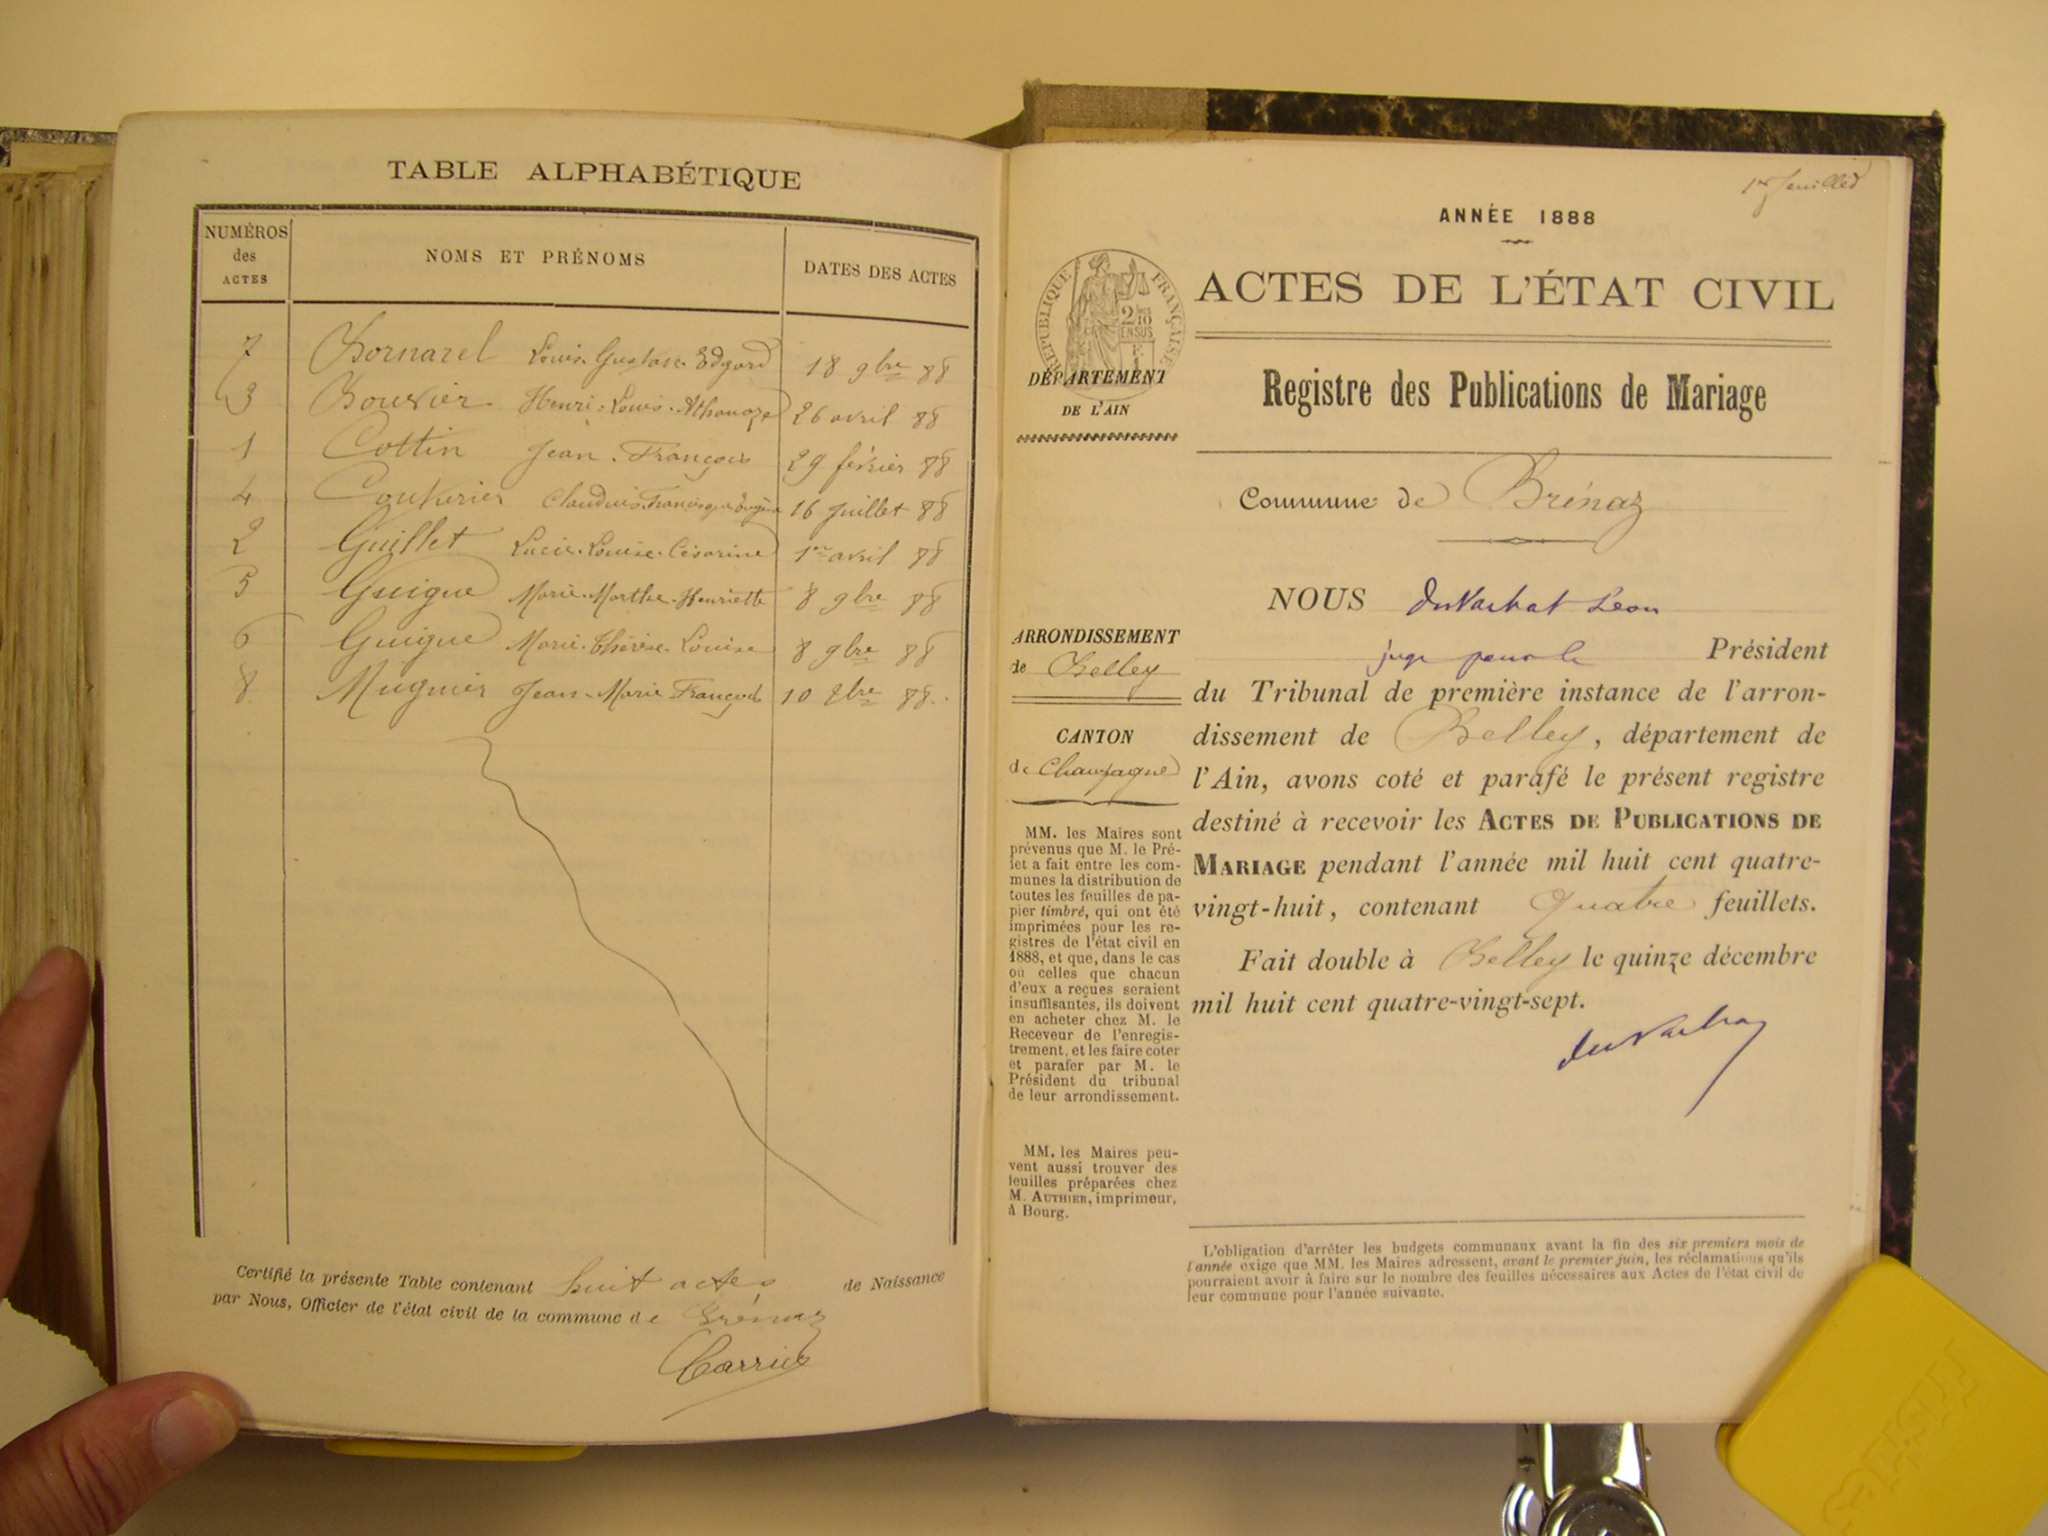 TABLE ALPHABÉTIQUE
NUMÉROS des ACTES
NOMS ET PRÉNOMS
DATES DES ACTES
7 Bornarel Louis Gustave Edgard 18 9bre 88
3 Bouvier Henri-Louis-Athanaze 26 avril 88
1 Cottin Jean-François 29 février 88
4 Couturier Claudius François 16 juillet 88
2 Guillet Lucie-Louise-Césarine 1er avril 88
5 Guigue Marie-Marthe-Henriette 8 9bre 88
6 Guigue Marie-Thérèse-Louise 8 9bre 88
8 Mugnier Jean-Marie François 10 Xbre 88
Certifié la présente Table contenant huit actes de Naissance
par Nous, Officier de l'état civil de la commune de Brénaz
Carrier
1er feuillet
ANNÉE 1888
RÉPUBLIQUE FRANÇAISE
2/10 EN SUS
ACTES DE L'ÉTAT CIVIL
DÉPARTEMENT
DE L'AIN
Registre des Publications de Mariage
Commune de Brénaz
ARRONDISSEMENT
de Belley
CANTON
de Champagne
MM. les Maires sont
prévenus que M. le Pré-
fet a fait entre les com-
munes la distribution de
toutes les feuilles de pa-
pier timbré, qui ont été
imprimées pour les re-
gistres de l'état civil en
1888, et que, dans le cas
où celles que chacun
d'eux a reçues seraient
insuffisantes, ils doivent
en acheter chez M. le
Receveur de l'enregis-
trement, et les faire coter
et parafer par M. le
Président du tribunal
de leur arrondissement.
MM. les Maires peu-
vent aussi trouver des
feuilles préparées chez
M. AUTHIER, imprimeur,
à Bourg.
NOUS duVachat Léon
juge pour le Président
du Tribunal de première instance de l'arron-
dissement de Belley, département de
l'Ain, avons coté et parafé le présent registre
destiné à recevoir les ACTES DE PUBLICATIONS DE
MARIAGE pendant l'année mil huit cent quatre-
vingt-huit, contenant Quatre feuillets.
Fait double à Belley le quinze décembre
mil huit cent quatre-vingt-sept.
duVachat
L'obligation d'arrêter les budgets communaux avant la fin des six premiers mois de
l'année exige que MM. les Maires adressent, avant le premier juin, les réclamations qu'ils
pourraient avoir à faire sur le nombre des feuilles nécessaires aux Actes de l'état civil de
leur commune pour l'année suivante.